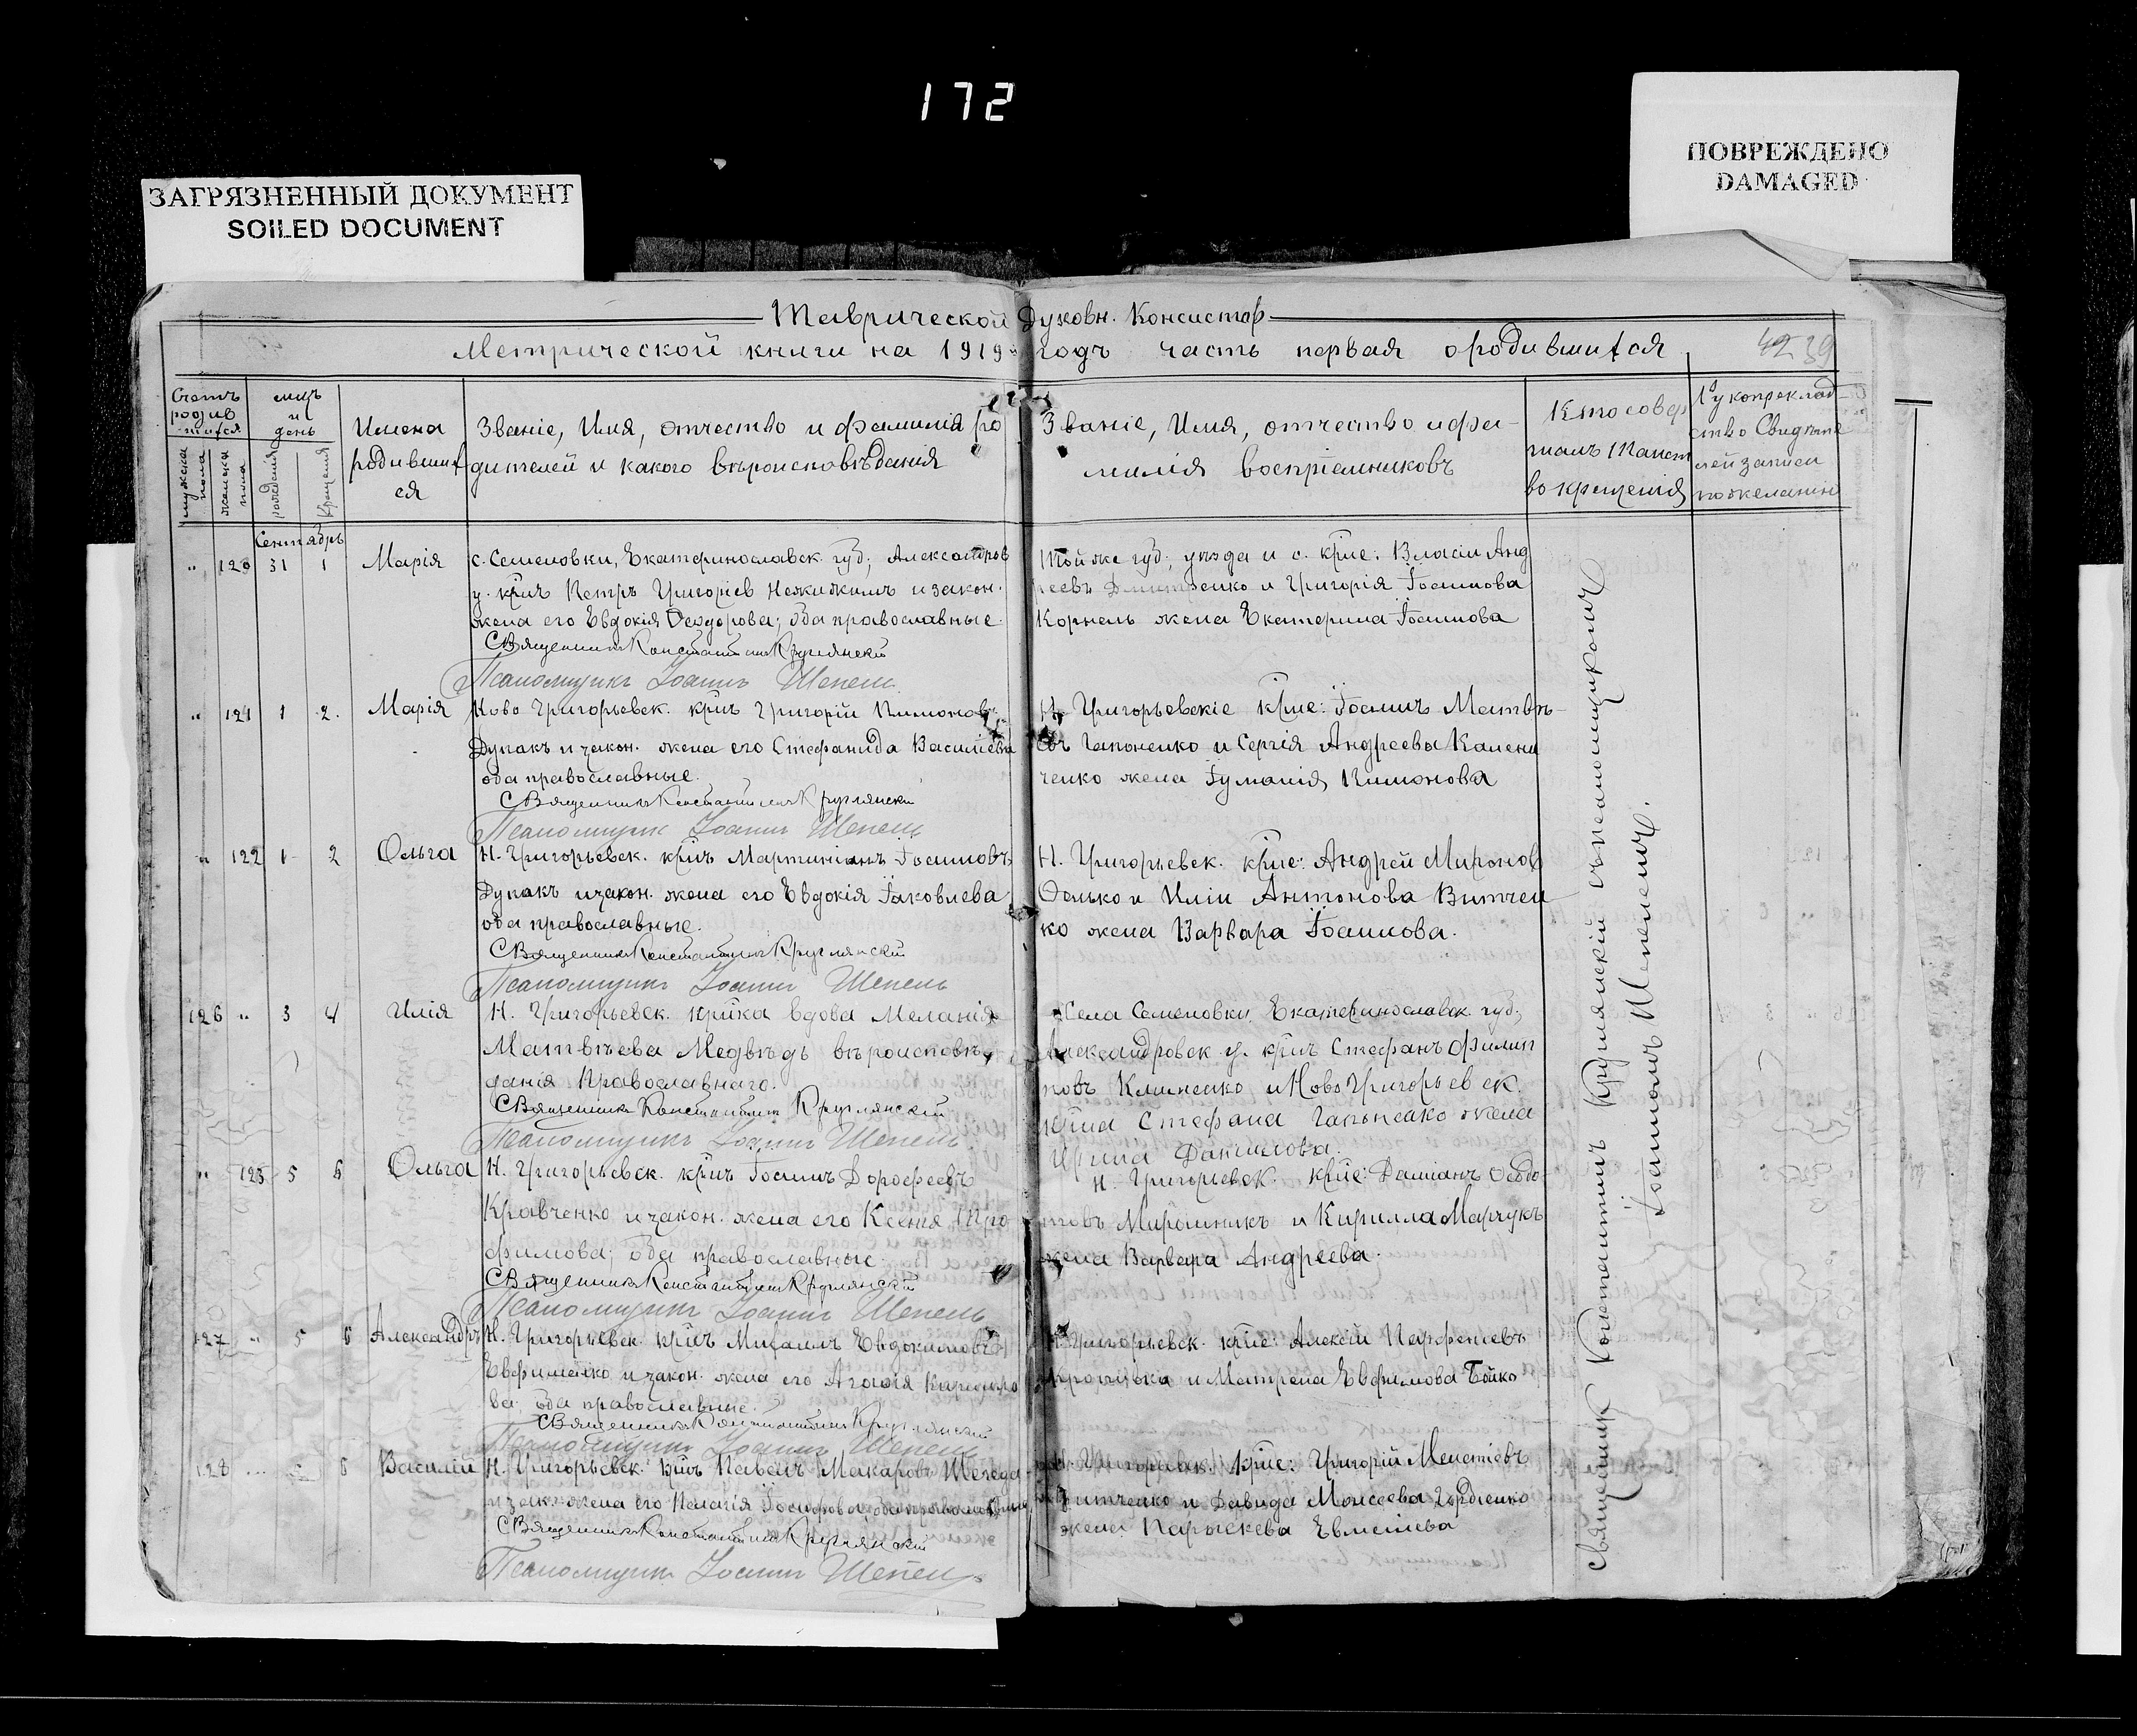 172
ЗАГРЯЗНЕННЫЙ ДОКУМЕНТ
SOILED DOCUMENT
ПОВРЕЖДЕНО
DAMAGED
Таврической Духовн. Консистор
Метрической книги на 1919 годъ часть первая о родившихся
42 39
Счетъ родив шихся
мужска пола
женска пола
мцъ и день
рожденія
Крещенія
Имена родившихся
Званіе, Имя, отчество и фамилія ро
дителей и какого вѣроисповѣданія
Званіе, Имя, отчество и фа-
милія воспріемниковъ
Кто совер
шалъ Таинст
во крещенія
Рукоприклад
ство Свидѣте
лей записи
по желанію
Сентябрь
" 120 31 1 Марія
с. Семеновки, Екатеринославск. губ; Александров
у. крнъ Петръ Григоріев и закон.
жена его Евдокія Ѳеодорова; оба православные.
Священникъ Константинъ Круглянскій
Псаломщикъ Іоаннъ Шепель
Той же губ; уѣзда и с. кріне: Власій Анд
реевъ Дмитренко и Григорія Іоаннова
Корнель жена Екатерина Іоаннова
" 121 1 2. Марія
Ново Григорьевск. крнъ Григорій Пимоновъ
Дупакъ и закон. жена его Стефанида Василіева
оба православные.
Священникъ Константинъ Круглянскій
Псаломщикъ Іоаннъ Шепель
Н. Григорьевскіе кріне: Іоаннъ Матвѣ-
евъ Гапоненко и Сергія Андреева Камени
ченко жена Пимонова
" 122 1 2 Ольга
Н. Григорьевск. крнъ Мартиніанъ Іоанновъ
Дупакъ и закон. жена его Евдокія Іаковлева
оба православные.
Священникъ Константинъ Круглянскій
Псаломщикъ Іоаннъ Шепель
Н. Григорьевск. кріне: Андрей Миронов
и Иліи Антонова Витчен
ко жена Варвара Іоаннова.
126 " 3 4 Илія
Н. Григорьевск. кр-ка вдова Меланія
Матвѣева Медвѣдь вѣроисповѣ
данія Православнаго.
Священникъ Константинъ Круглянскій
Псаломщикъ Іоаннъ Шепель
Села Семеновки, Екатеринославск. губ;
Александровск у. крнъ Стефанъ Филип
повъ Клименко и Ново Григорьевск.
Стефана Гапоненко жена
Ирина Данилова.
" 123 5 6 Ольга
Н. Григорьевск. крнъ Іоаннъ Дорофеевъ
Кравченко и закон. жена его Ксенія Тро
фимова; оба православные.
Священникъ Константинъ Круглянскій
Псаломщикъ Іоаннъ Шепель
Н. Григорьевск. кріне: Даміанъ
Мирошникъ и Кирилла Марчукъ
жена Варвара Андреева.
127 " 5 6 Александръ
Н. Григорьевск. крнъ Михаилъ Евдокимовъ
Евфименко и закон. жена его Агафія
ва, оба православные.
Священникъ Константинъ Круглянскій
Псаломщикъ Іоаннъ Шепель
Н. Григорьевск. кріне: Алексій Парфеніевъ
и Матрена Евфимова Бойко
128 6 Василій
Н. Григорьевск. крнъ Павелъ Макаровъ
и зак. жена его Пелагія оба православные
Священникъ Константинъ Круглянскій
Псаломщикъ Іоаннъ Шепель
Н. Григорьевск. кріне: Григорій Мелетіевъ
Витченко и Давида Моисеева Гордіенко
жена Параскева
Священникъ Константинъ Круглянскій съ псаломщикомъ
Іоанномъ Шепелемъ.